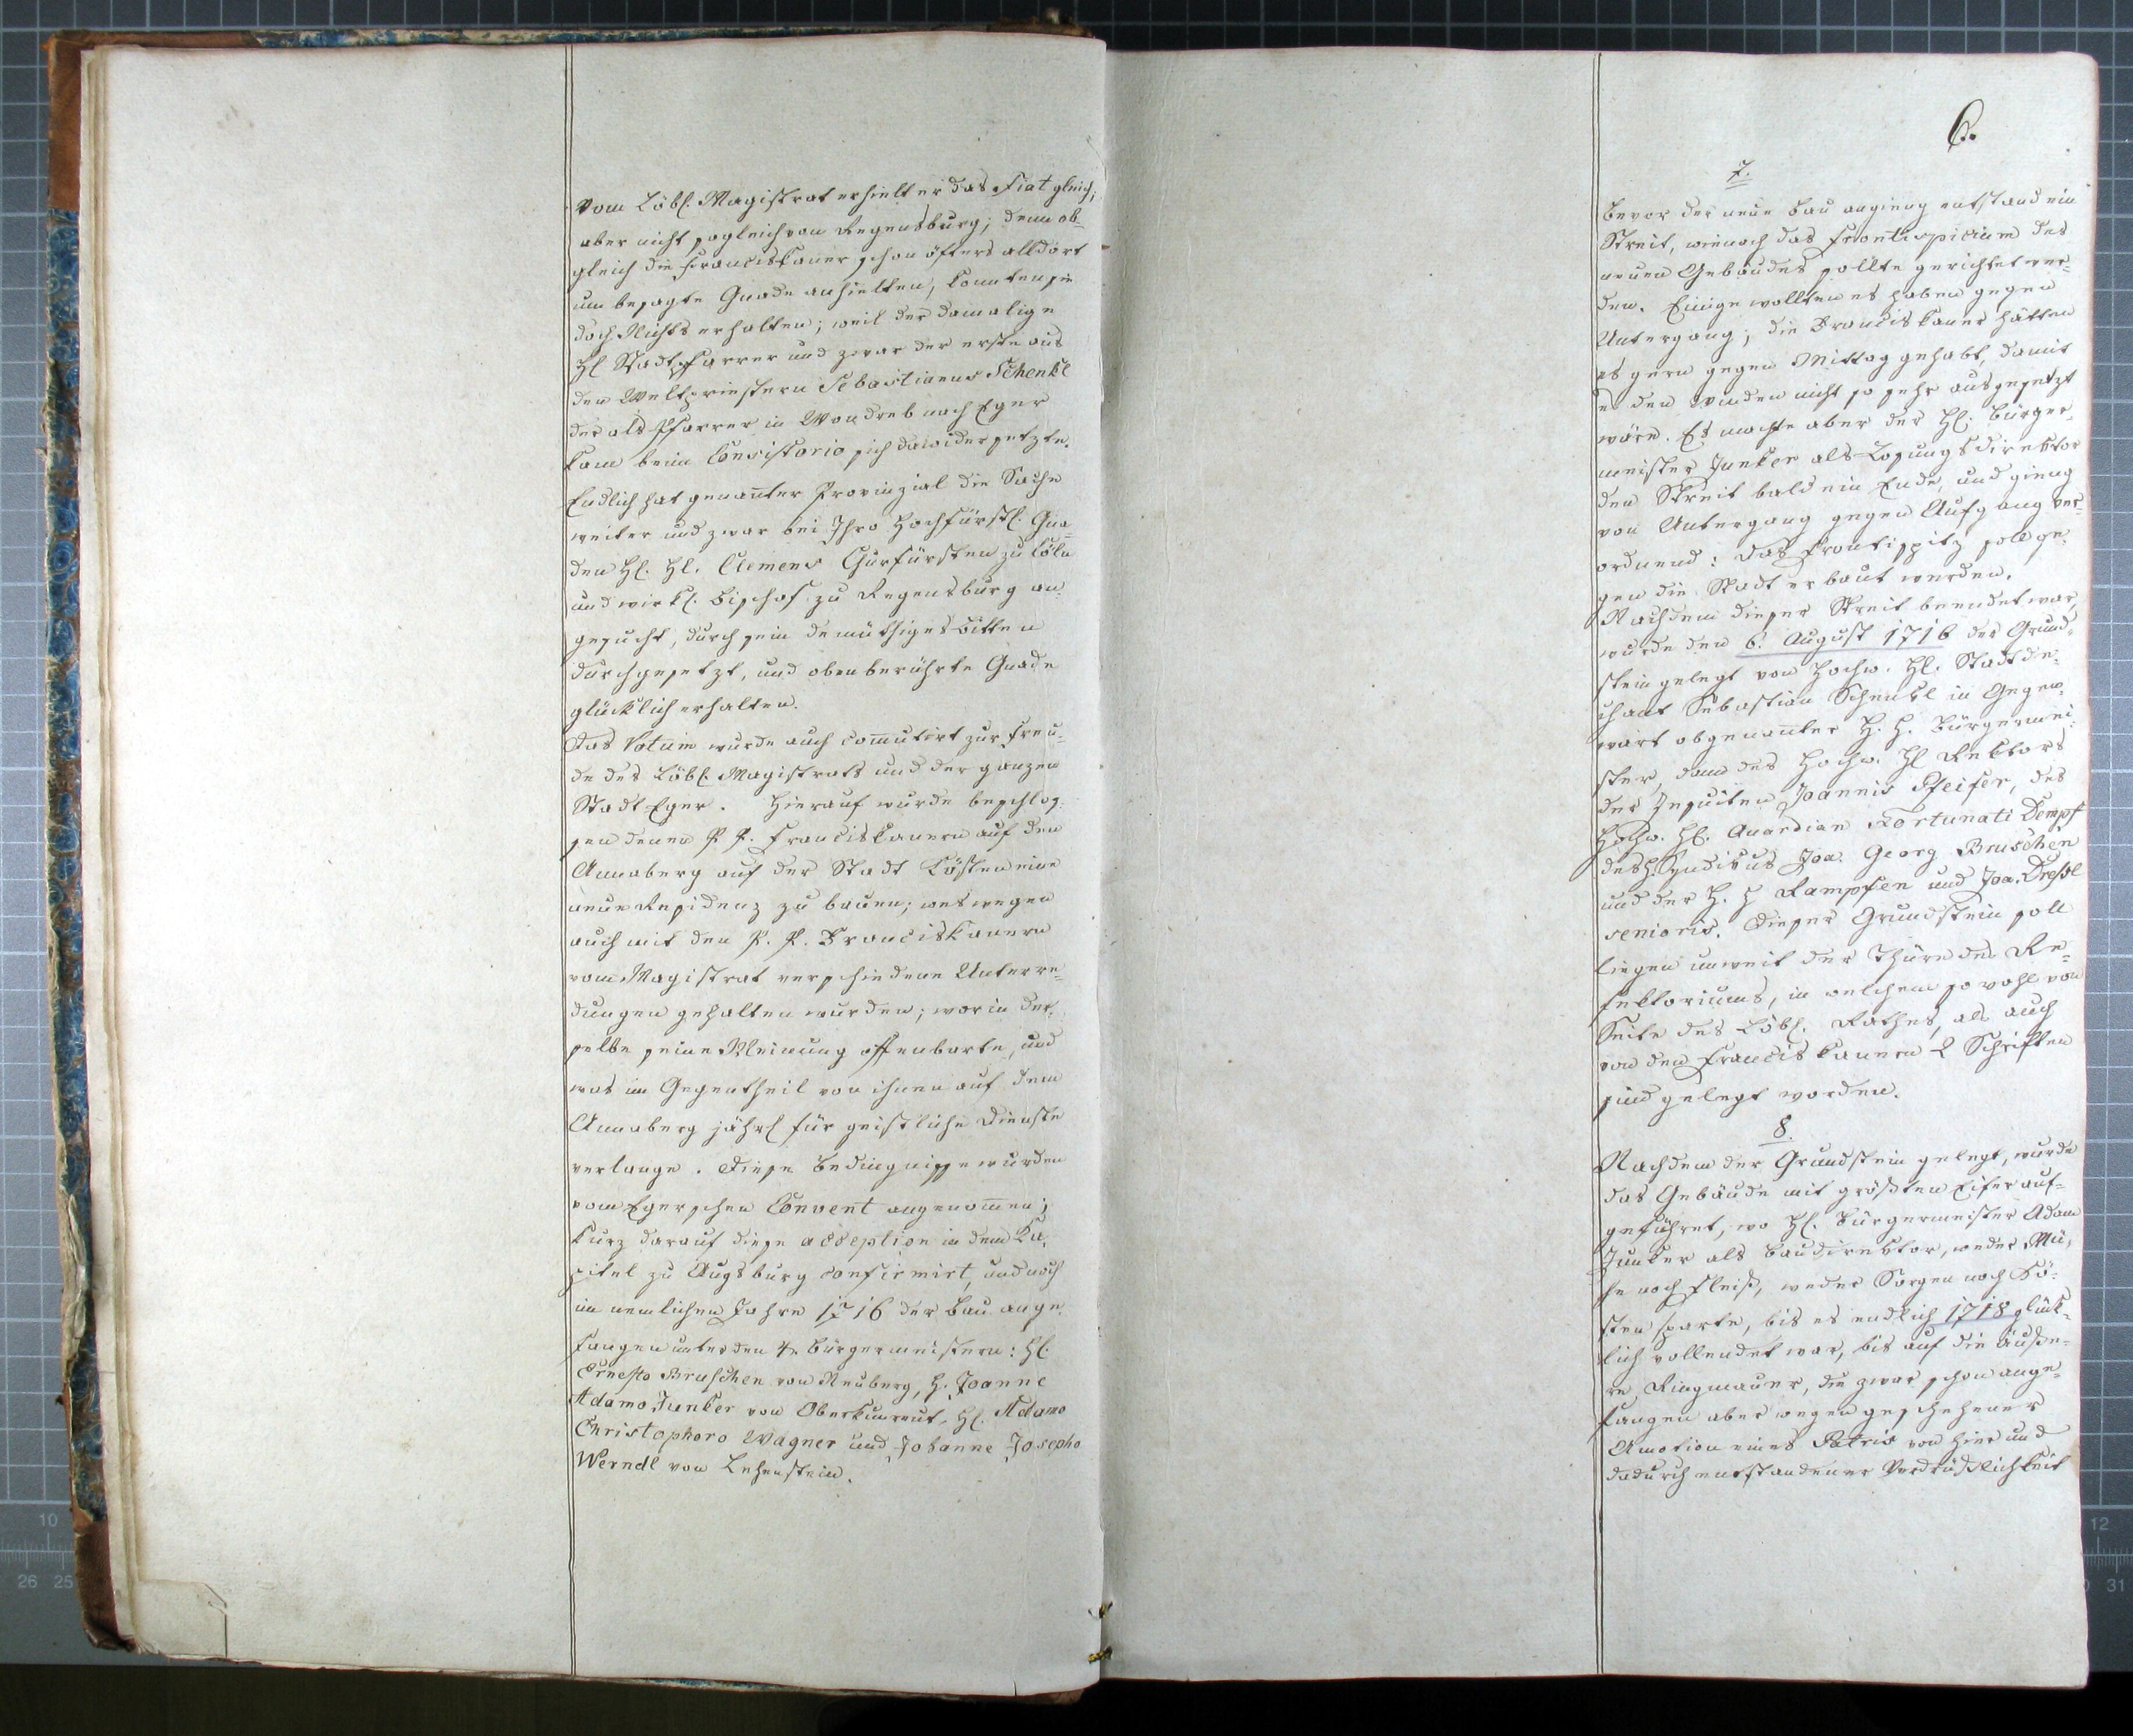 vom Löbl. Magistrat erhielt er das Fiat gleich,
aber nicht sogleich von Regensburg; denn ob-
gleich die Franciskaner schon öfters alldort
um besagte Gnade anhielten, konnten sie
doch Nichts erhalten; weil der damalige
Hl Stadtpfarrer und zwar der erste aus
den Weltpriestern Sebastianus Schenkl
der als Pfarrer in Wondreb nach Eger
kam beim Consistorio sich dawidersetzte.
Endlich hat genanter Provinzial die Sache
weiter und zwar bei Ihro Hochfürstl. Gna-
den Hl. Hl. Clemens Churfürsten zu Cöln
und wirkl. Bischof zu Regensburg an-
gesucht, durch sein demüthiges Bitten
durchgesetzt, und obenberührte Gnade
glücklich erhalten.
Das Votum wurde auch comutirt zur Freu-
de des Löbl. Magistrats und der ganzen
Stadt Eger. Hierauf wurde beschlos-
sen denen P. P. Franciskanern auf den
Annaberg auf der Stadt Kösten eine
neue Residenz zu bauen; weswegen
auch mit den P. P. Franciskanern
vom Magistrat verschiedene Unterre-
dungen gehalten wurden; worin der-
selbe seine Meinung offenbarte, und
was im Gegentheil von ihnen auf dem
Annaberg jährl für geistliche Dienste
verlange. Diese Bedingnisse wurden
vom Egerschen Convent angenomen;
kurz darauf diese acception in dem Ka-
pitel zu Augsburg confirmirt, und noch
im nemlichen Jahre 1716 der Bau ange-
fangen unter den 4 Bürgermeistern: Hl.
Ernesto Bruschen von Neuberg, H. Joanne
Adamo Junker von Oberkunreut, Hl. Adamo
Christophoro Wagner und Johanne Josepho
Werndl von Lehenstein.
6.
7.
Bevor der neue Bau angieng entstand ein
Streit, wienach das Frontispicium des
neuen Gebäudes sollte gerichtet wer-
den. Einige wollten es haben gegen
Untergang; die Franciskaner hätten
es gern gegen Mittag gehabt, damit
es den Winden nicht so sehr ausgesetzt
wäre. Es machte aber der Hl. Bürger-
meister Junker als Losungsdirektor
den Streit bald ein Ende, und gieng
von Untergang gegen Aufgang ver-
ordnend: das Frontispitz soll ge-
gen die Stadt erbaut werden.
Nachdem dieser Streit beendet war,
wurde den 6. August 1716 der Grund-
stein gelegt von Hochw. Hl. Stadtde-
chant Sebastian Schenkl in Gegen-
wart obgenanter H. H. Bürgermei-
ster, dann des Hochw. Hl Rektors
der Jesuiten Joannis Pfeifer, des
Hochw. Hl. Quardian Fortunati Dempf
des H. Syndikus Joa. Georg Bruschen
und der H. H Rampfen und Joa. Dreßl
senioris. Dieser Grundstein soll
liegen unweit der Thüre des Re-
fektoriums, in welchem so wohl von
Seite des Löbl. Rathes, als auch
von den Franciskanern 2 Schriften
sind gelegt worden.
8.
Nachdem der Grundstein gelegt, wurde
das Gebäude mit größten Eifer auf-
geführet, wo Hl. Bürgermeister Adam
Junker als Baudirektor, weder Mü-
he noch Fleiß, weder Sorgen noch Kö-
sten sparte, bis es endlich 1718 glük-
lich vollendet war, bis auf die äuße-
re Ringmauer, die zwar schon ange-
fangen aber wegen geschehener
Amotion eines Patris von hier und
dadurch entstandener Verdrüßlichkeit